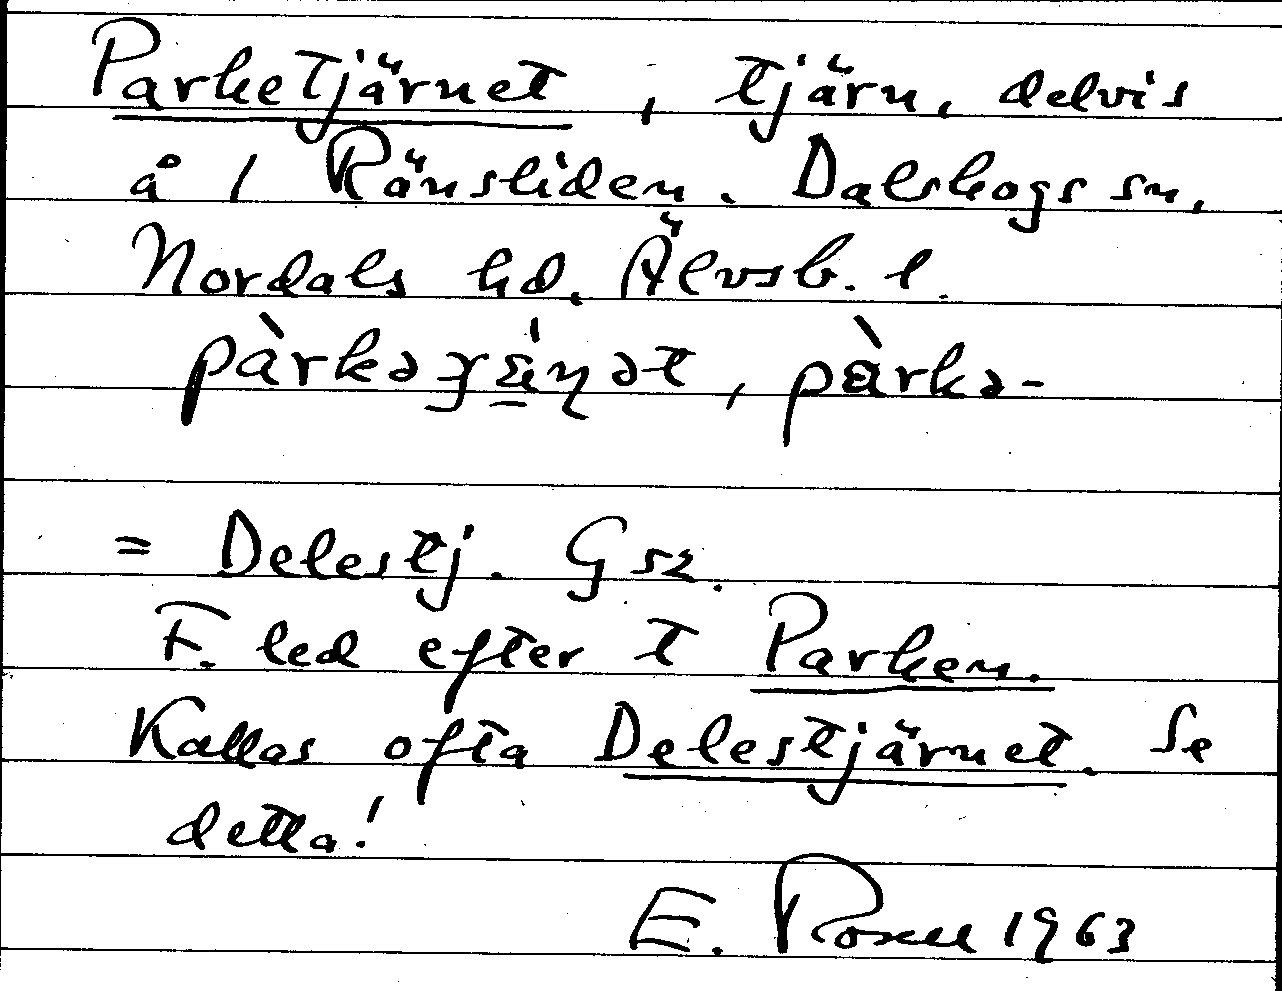 Parketjärnet, tjärn, delvis
å 1 Ränsliden. Dalskogs sn,
Nordals hd. Älvsb. l.
pàrkə-, pàrkə-
= Delestj. G 52.
F. led efter t Parken.
Kallas ofta Delestjärnet. Se
detta!
E. Rosell 1963